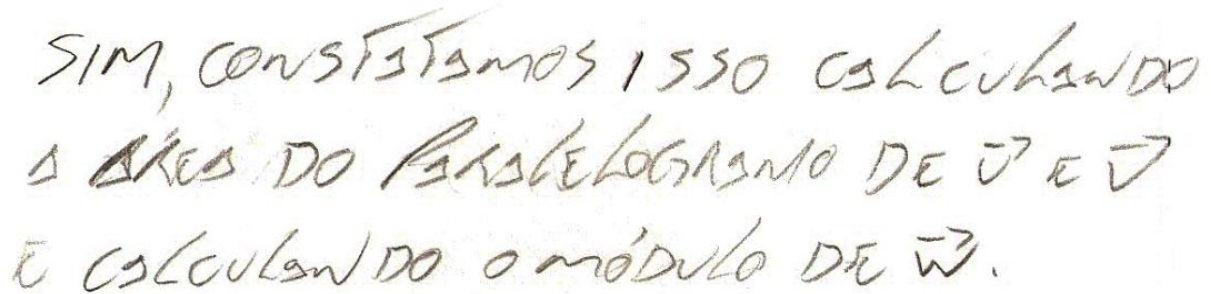 SIM, CONSTATAMOS ISSO CALCULANDO
A ÁREA DO PARALELOGRAMO DE u⃗ E v⃗
E CALCULANDO O MÓDULO DE w⃗.